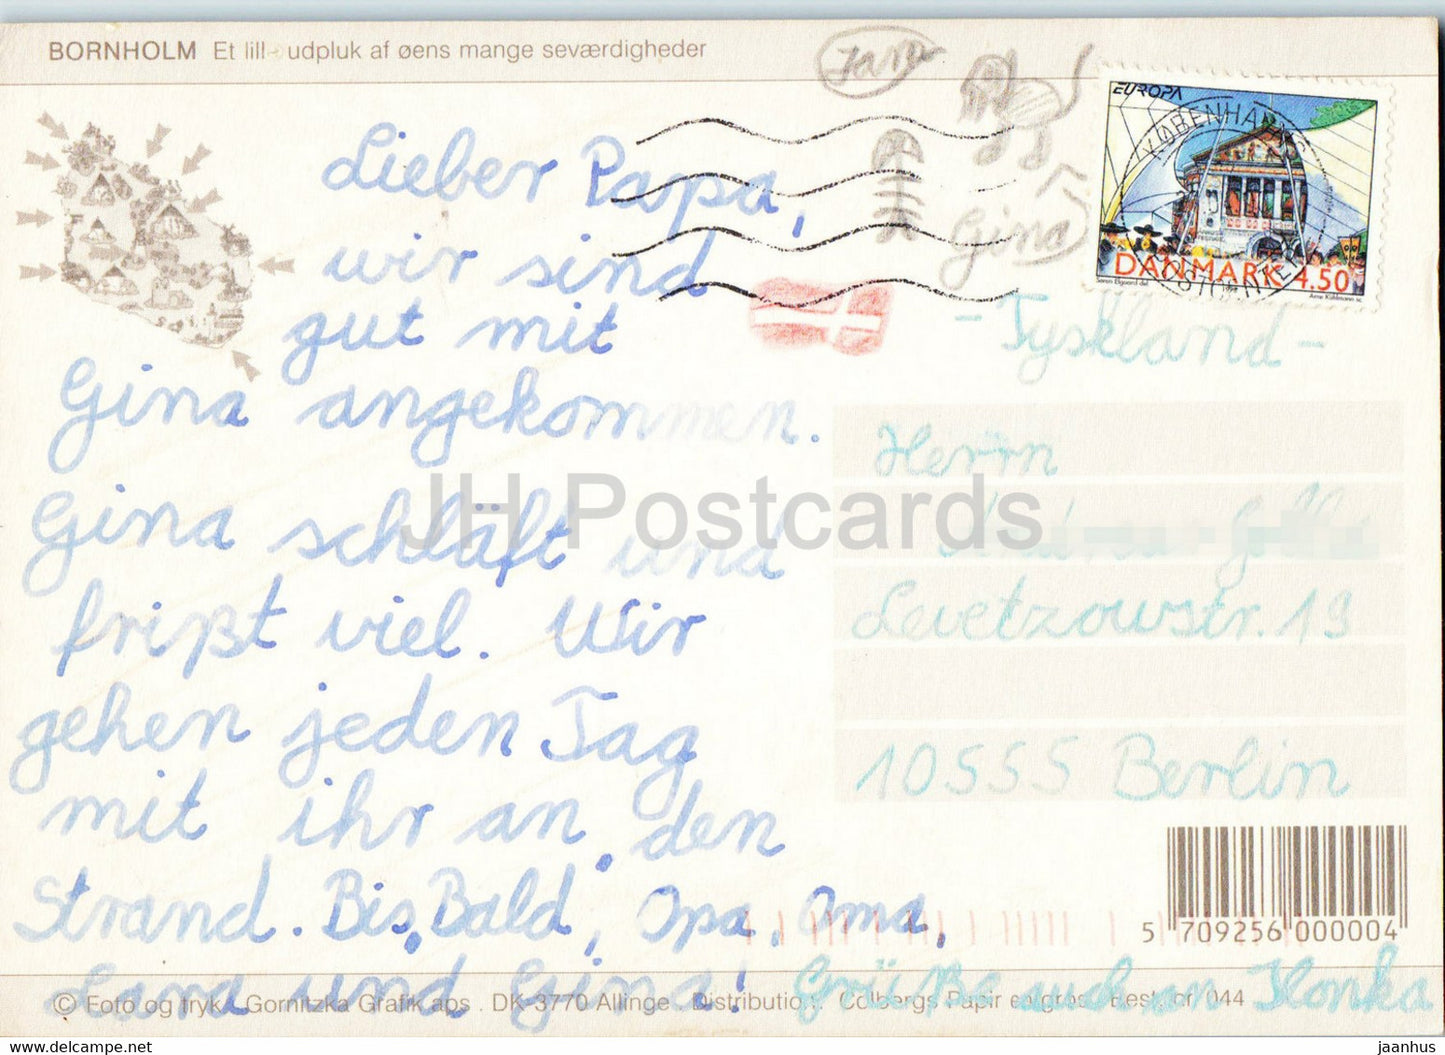 BORNHOLM Et lill udpluk af øens mange seværdigheder
Lara
Gina
EUROPA
KØBENHAVNS
POSTCENTER
DANMARK 4.50
Lieber Papa,
wir sind
gut mit
Gina angekommen.
Gina schläft und
frißt viel. Wir
gehen jeden Tag
mit ihr an den
Strand. Bis Bald, Opa, Oma,
Lara und Gina! Grüße auch an Ilonka
- Tyskland -
Herrn
Levetzowstr. 19
10555 Berlin
5 709256 000004
© Foto og tryk: Gornitzka Grafik aps . DK-3770 Allinge. Distribution: Colbergs Papir en gros. Best. nr. 044
JH Postcards
www.delcampe.net
jaanhus